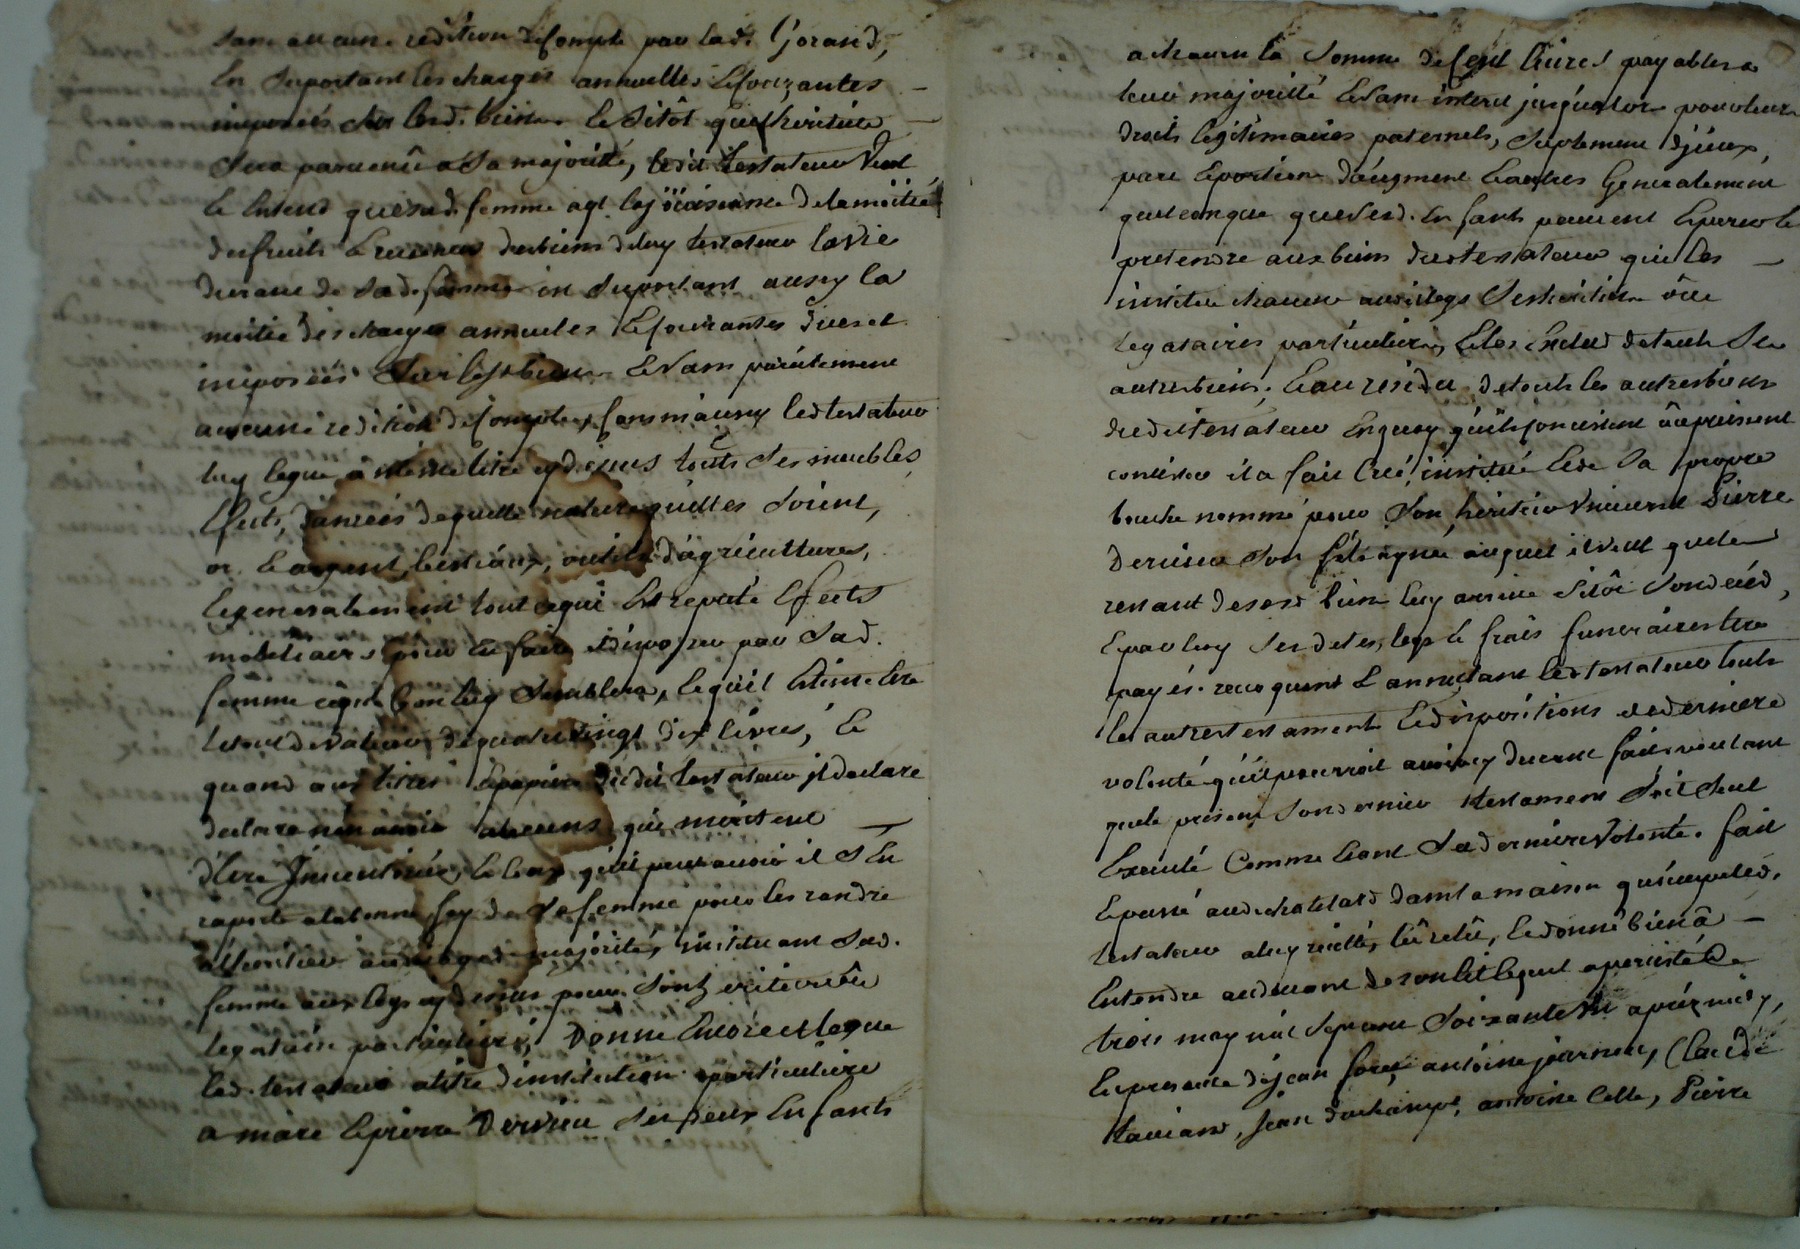 sans aucune redition de compte par lad. Gorand,
en suportant les charges annuelles & courantes
imposés sur lesd. biens & sitôt que l'heritier
sera parvenû a sa majorité, ledit testateur veut
& entend que sad. femme ayt la joüissance de la môitié
des fruits & revenus des biens de luy testateur la vie
durant de sad. femme en suportant ausy la
moitié des charges annuelles & courantes dues et
imposées sur lesd. biens & sans paréilement
aucune redition de compte, ledtestateur
luy legue à même titre cy dessus touts ses meubles
effects, danrées de quelle nature qu'elles soient,
or & argent, bestiaux, outils d'agriculture,
& generalement tout ce qui est reputé effects
mobiliairs pour en faire & disposer par sad.
femme ce que bon luy semblera, le quel estime être
le tout de valeur de quatre vingt dix livres, &
quand aux titres & papiers dudit testateur il declare
declare n'en avoir aucuns qui meritent
d'être jnventoriés, & ceux qu'il peut avoir il s'en
raporte a la bonne foy de sa femme pour les randre
a l'heritier majorité, instituant sad.
femme aux legs cy dessus pour son heritiere ôu
legataire particuliere, Donne encore & legue
led. testateur a titre d'institution particuliere
a marc & pierre Dervieu ses deux enfants
a chacun la somme de cent livres payables a
leur majorité & sans interet jusqu'alors pour leurs
droits legitimaires paternels, suplement d'jceux,
part & portion d'augment & autres generalement
quelconque que sesd. enfants peuvent &
pretendre aux biens dud testateur qui les
institue chacun auxd. legs ses heritiers ôu
legataires particuliers, & les exclud de touts ses
autres biens. & au residu de touts les autres biens
dudit testateur en quoy qu'ils consistent ôu puissent
consister il a fait créé, institué & de sa propre
bouche nommé pour son heritier universel Pierre
Dervieu son fils ayné auquel il veut que le
restant de sesd. biens luy arrive sitôt son deced,
& par luy ses detes, legs & frais funeraires être
payés. revoquant & annullant led testateur touts
les autres testaments & dispositions de derniere
volonté qu'il pourroit avoir cy devant faits voulant
que le present son dernier testament soit seul
executé comme étant sa derniere volonté. fait
& passé aud. chatelard dans la maison dud.
testateur a luy recitté, lû relû, & donné bien â
entendre au devant de son lit le
trois may mil sept cent soixante apréz midy,
en presence de jean foret, antoine journoux, Claude
jean duchamps, antoine Celle, Pierre